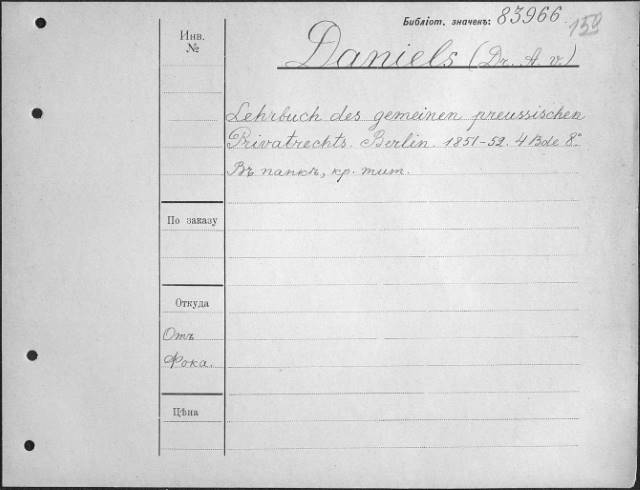 Библіот. значекъ: 83966
159
Инв.
№
Daniels (Dr. A. v.)
Lehrbuch des gemeinen preussischen
Privatrechts. Berlin. 1851-52. 4 Bde 8°.
Въ папкѣ, кр. тит.
По заказу
Откуда
Отъ
Фока.
Цѣна